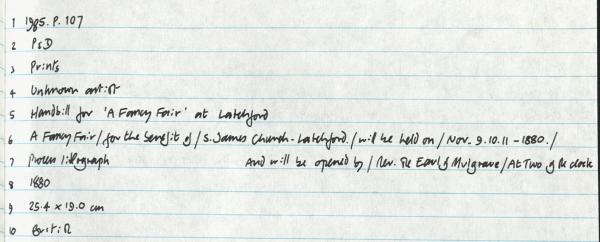 1 1985.P.107
2 PsD
3 Prints
4 Unknown artist
5 Handbill for 'A Fancy Fair' at Latchford
6 A Fancy Fair/for the benefit of/S.James Church-Latchford./will be held on/Nov. 9.10.11-1880./
7 Process lithograph And will be opened by/Rev. the Earl of Mulgrave/At Two of the clock
8 1880
9 25.4 x 19.0 cm
10 British